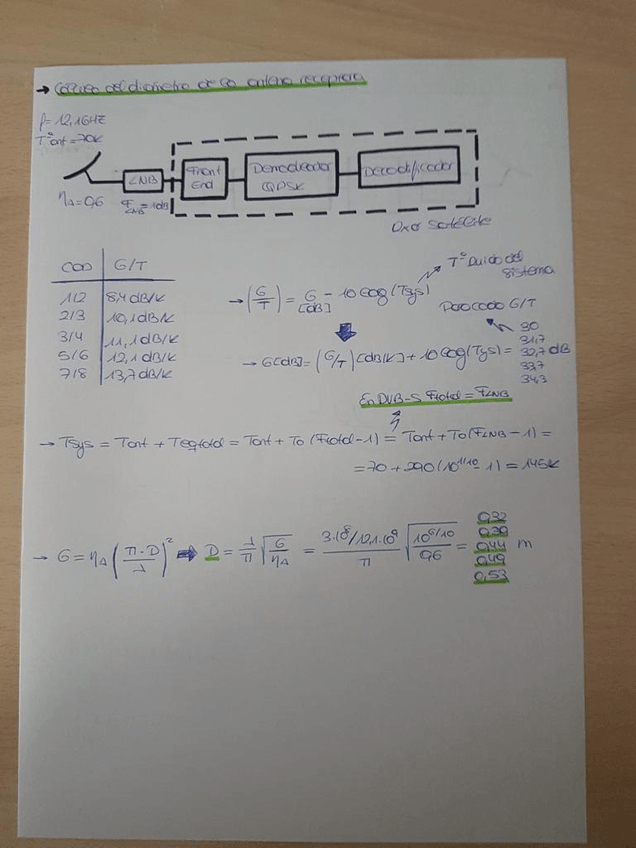 → Cálculo del diámetro de la antena receptora
f = 12,1GHz
Tªant = 70K
LNB
Front
End
Demodulador
QPSK
Decodificador
ηA = 0,6
FLNB = 1dB
Dxor Satélite
COD G/T
1/2 8,4 dB/K
2/3 10,1 dB/K
3/4 11,1 dB/K
5/6 12,1 dB/K
7/8 13,7 dB/K
→ (G/T) = G[dB] - 10log(Tsys)
Tª Ruido del
sistema
Para cada G/T
→ G[dB] = (G/T)[dB/K] + 10log(Tsys) =
30
31,7
32,7 dB
33,7
34,3
En DVB-S Ftotal = FLNB
→ Tsys = Tant + Teqtotal = Tant + To (Ftotal - 1) = Tant + To (FLNB - 1) =
= 70 + 290 (10^1/10 - 1) = 145K
→ G = ηA (π·D/λ)² ⇒ D = λ/π √(G/ηA) = (3·10⁸/12,1·10⁹)/π √(10^(G/10)/0,6) = m
0,32
0,39
0,44
0,49
0,53